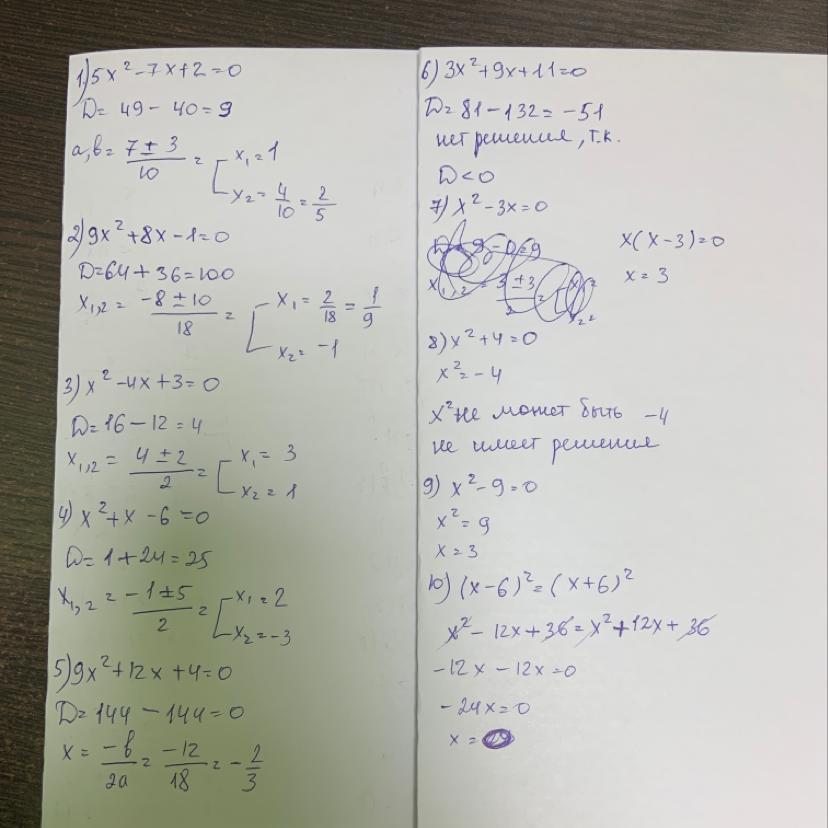 1) 5x² - 7x + 2 = 0
D = 49 - 40 = 9
a,b = (7 ± 3)/10 = [ x₁ = 1
x₂ = 4/10 = 2/5
2) 9x² + 8x - 1 = 0
D = 64 + 36 = 100
x₁,₂ = (-8 ± 10)/18 = [ x₁ = 2/18 = 1/9
x₂ = -1
3) x² - 4x + 3 = 0
D = 16 - 12 = 4
x₁,₂ = (4 ± 2)/2 = [ x₁ = 3
x₂ = 1
4) x² + x - 6 = 0
D = 1 + 24 = 25
x₁,₂ = (-1 ± 5)/2 = [ x₁ = 2
x₂ = -3
5) 9x² + 12x + 4 = 0
D = 144 - 144 = 0
x = -b/2a = -12/18 = -2/3
6) 3x² + 9x + 11 = 0
D = 81 - 132 = -51
нет решения, т.к.
D < 0
7) x² - 3x = 0
x(x - 3) = 0
x = 3
8) x² + 4 = 0
x² = -4
x² не может быть -4
не имеет решения
9) x² - 9 = 0
x² = 9
x = 3
10) (x - 6)² = (x + 6)²
x² - 12x + 36 = x² + 12x + 36
-12x - 12x = 0
-24x = 0
x =